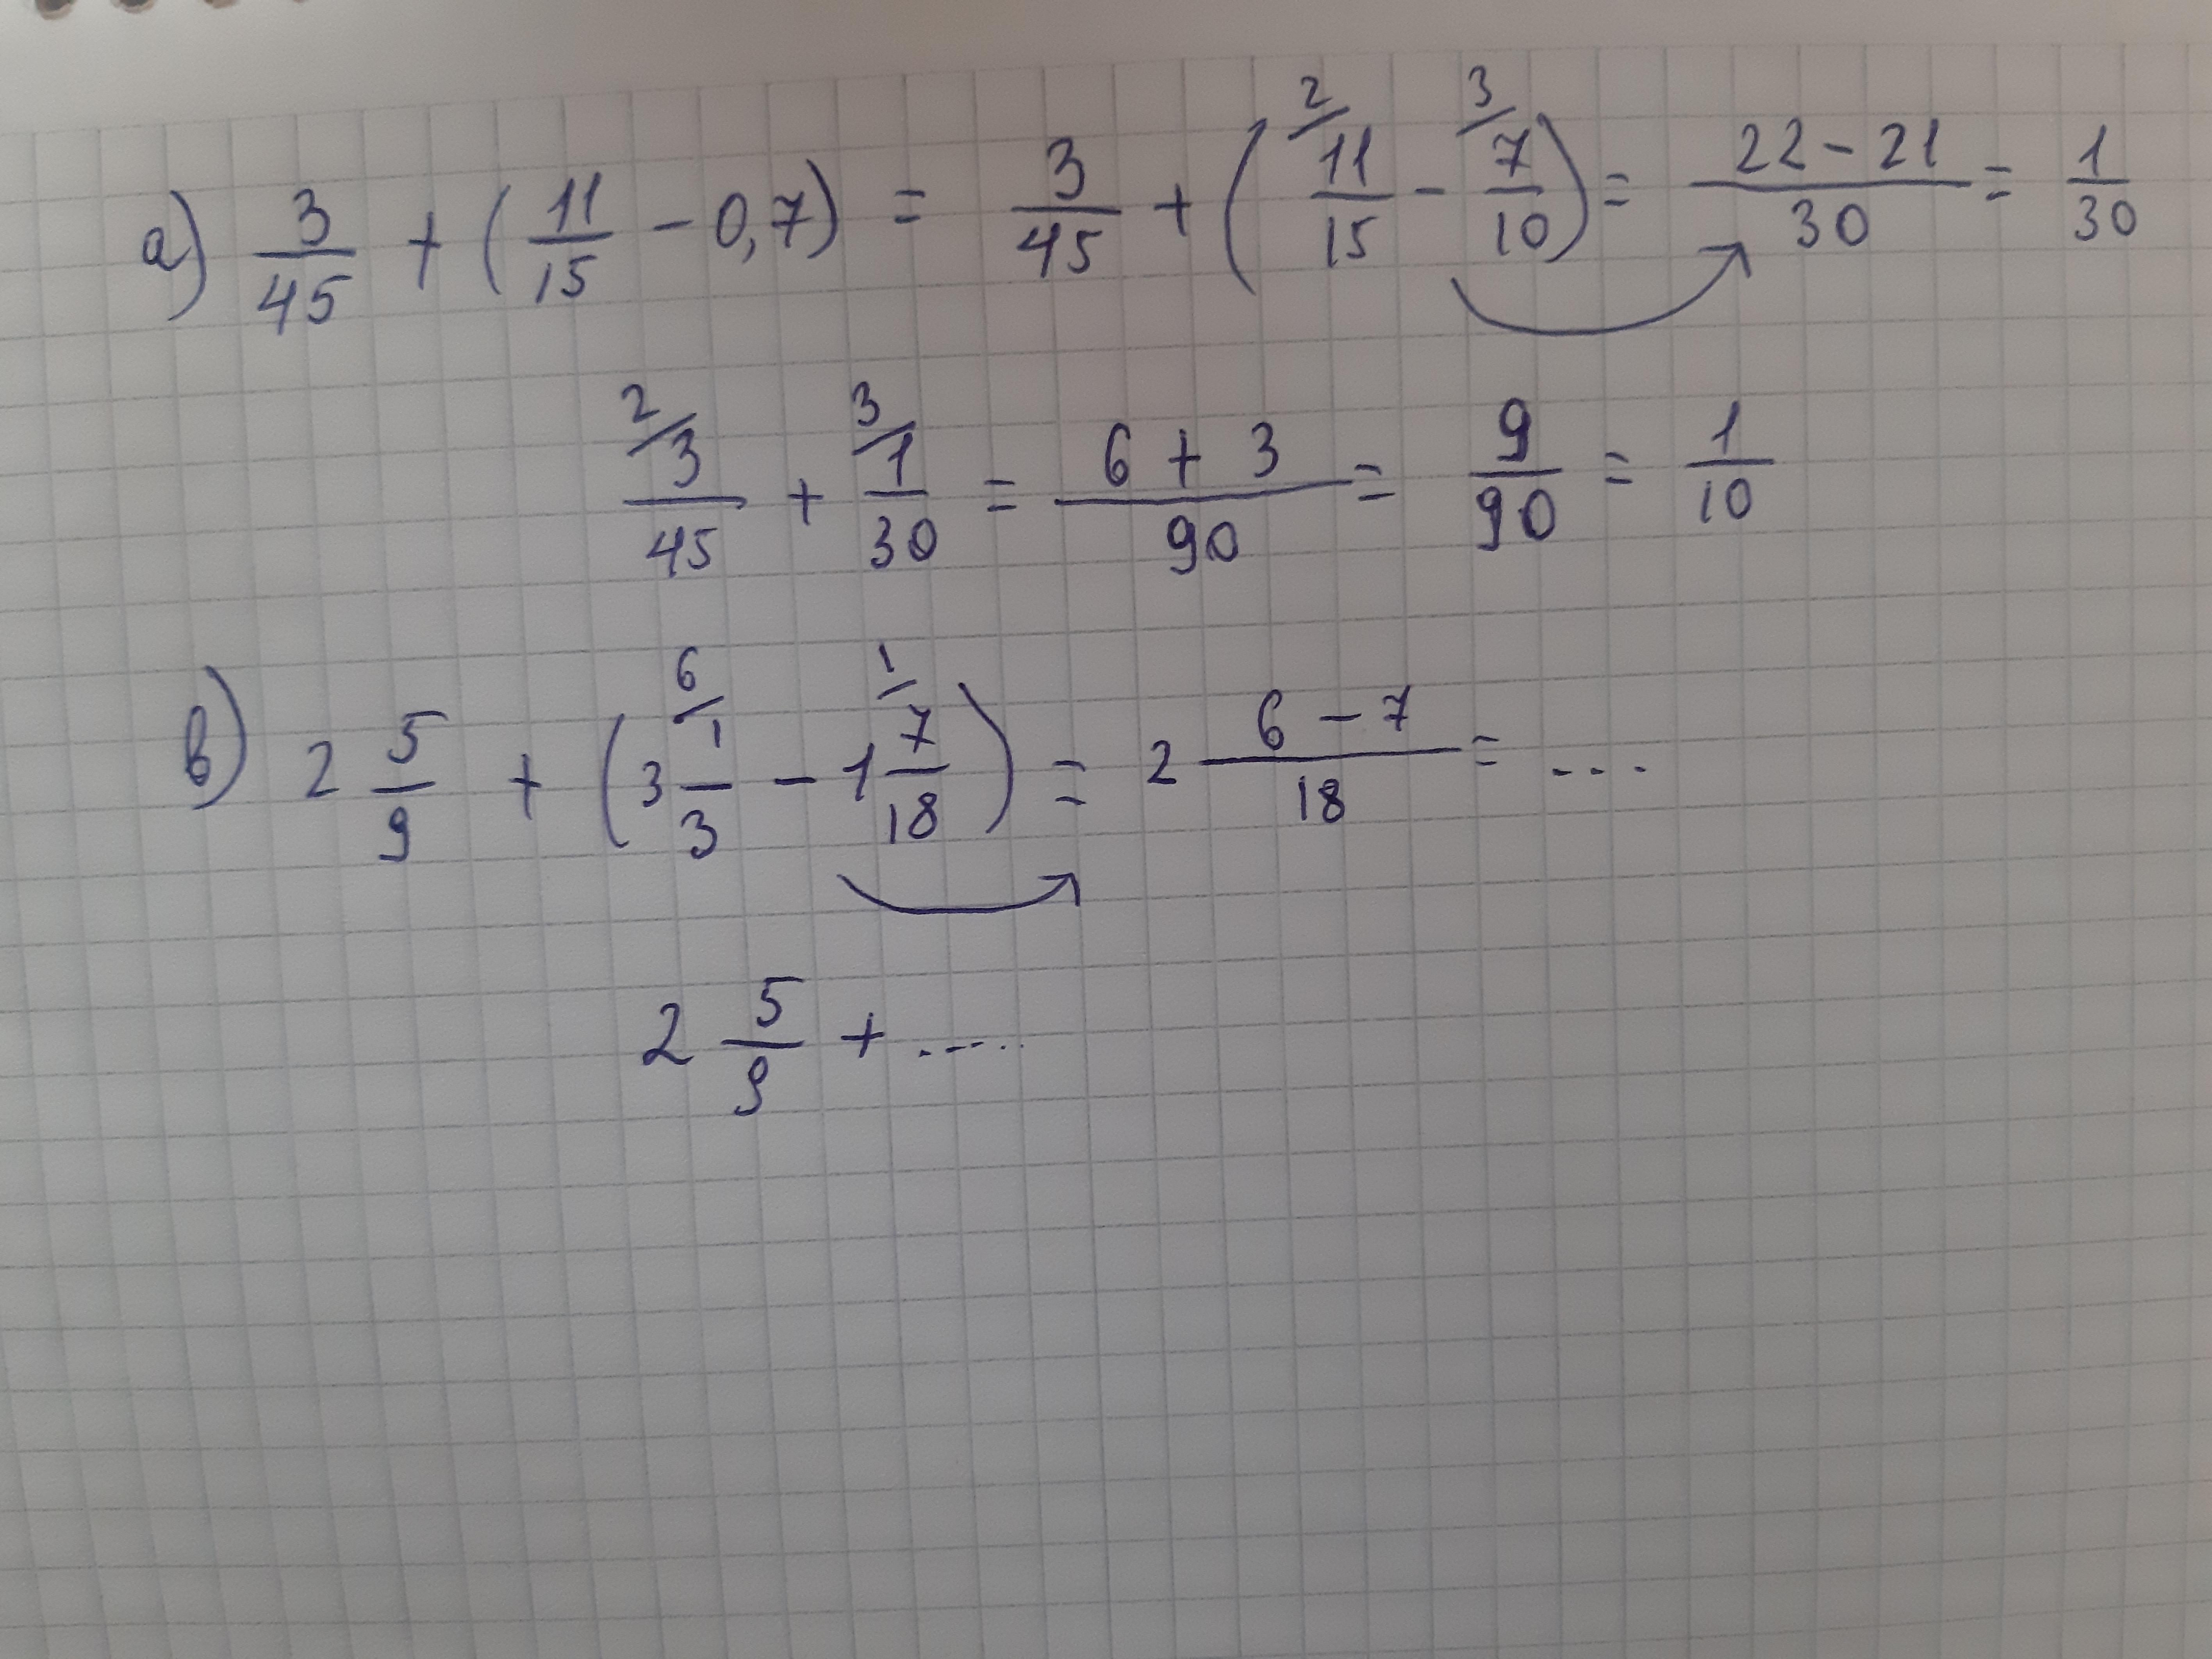 a) 3/45 + (11/15 - 0,7) = 3/45 + (2/ 11/15 - 3/ 7/10) = 22 - 21/30 = 1/30
2/ 3/45 + 3/ 1/30 = 6 + 3/90 = 9/90 = 1/10
в) 2 5/9 + (3 6/ 1/3 - 1 1/ 7/18) = 2 6 - 7/18 = ...
2 5/9 + .....